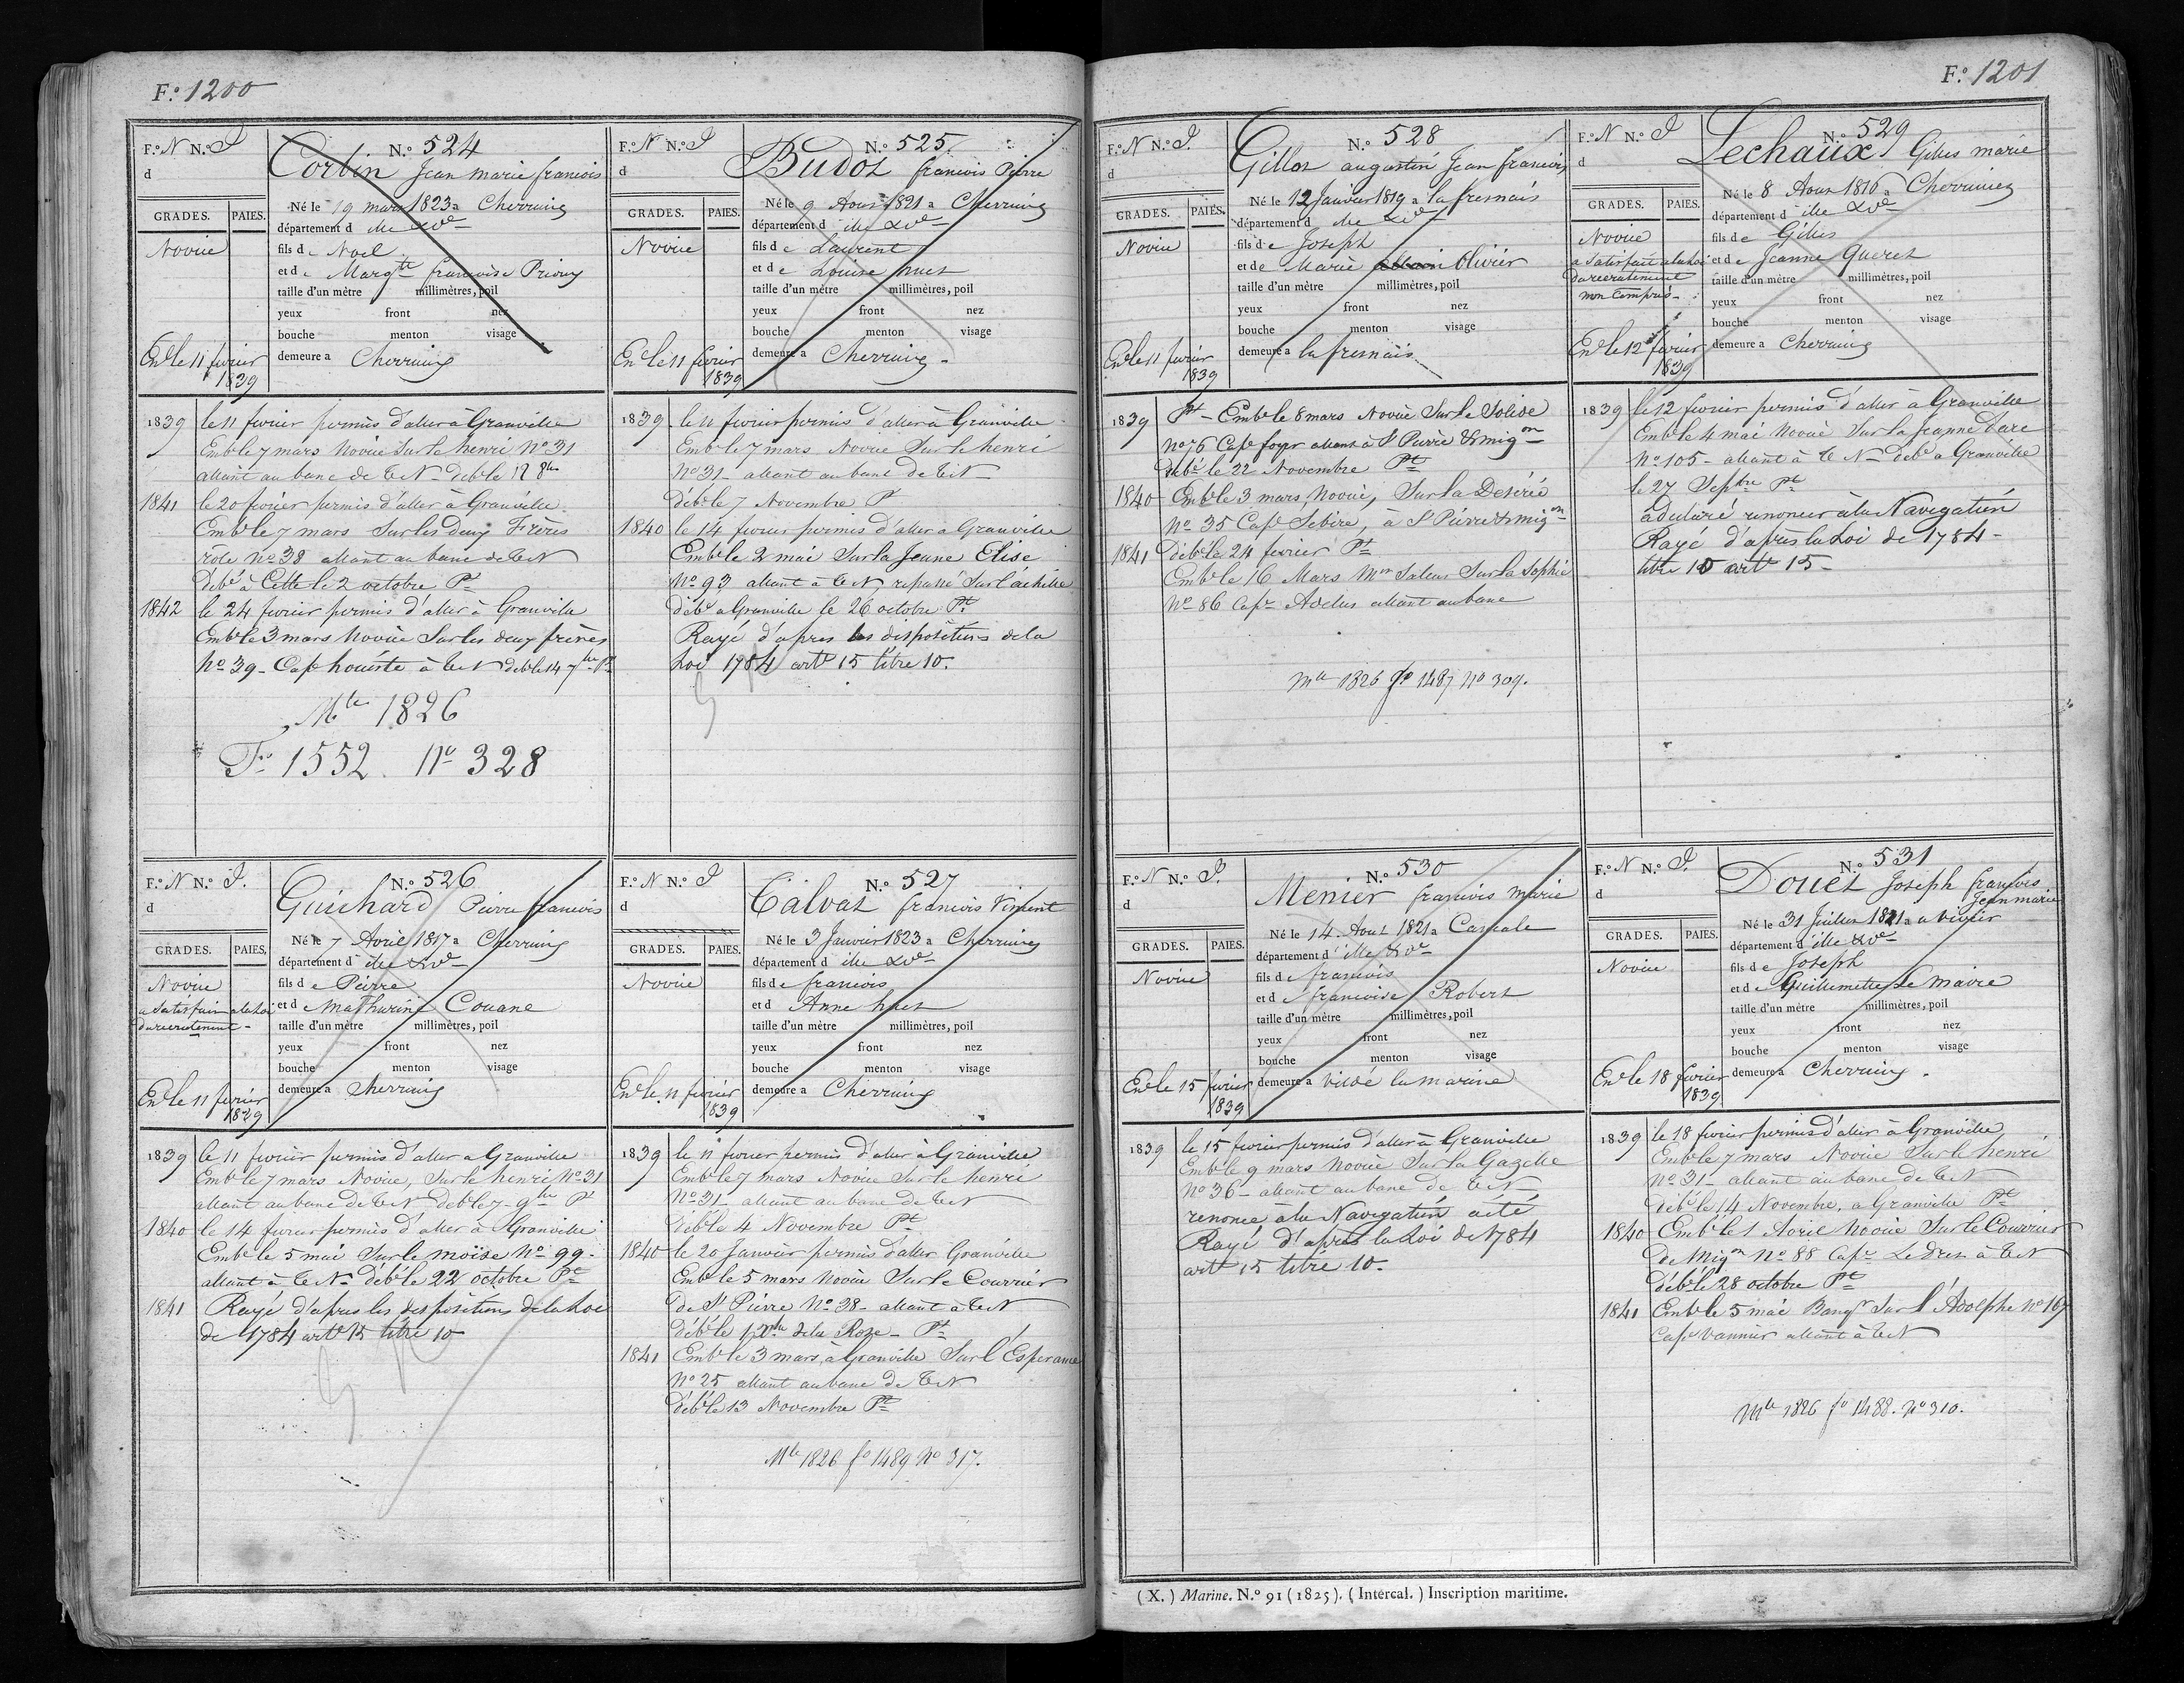 F.o 1200
F.o N N.o P
d
GRADES. PAIES.
Novice
Enr le 11 fevrier
1839
N.o 524
Corbin Jean marie francois
Né le 19 mars 1823 a Cherrueix
département d ille & Ve
fils de Noel
et de Margte francoise Prioux
taille d'un mètre millimètres, poil
yeux front nez
bouche menton visage
demeure a Cherrueix
1839 le 11 fevrier permis d'aller à Granville
Embé le 7 mars Novice Sur le henri No 31
allant au banc de T N débé le 18 8bre
1841 le 20 fevrier permis d'aller à Granville
Embé le 7 mars Sur les Deux Frères
rôle No 38 allant au banc de T N
débé à Cette le 2 octobre Pt
1842 le 24 fevrier permis d'aller à Granville
Embé le 3 mars Novice Sur les deux frères
No 39 - Cape houeste à T N débé le 14 7bre Pt
Mle 1826
Fo 1552. No 328
F.o N N.o P
d
GRADES. PAIES.
Novice
Enr le 11 fevrier
1839
N.o 525
Budot francois Pierre
Né le 9 Aout 1821 a Cherrueix
département d ille & Ve
fils de Laurent
et de Louise huet
taille d'un mètre millimètres, poil
yeux front nez
bouche menton visage
demeure a Cherrueix
1839 le 11 fevrier permis d'aller à Granville
Embé le 7 mars Novice Sur le henri
No 31 - allant au banc de T N
débé le 7 Novembre Pt
1840 le 14 fevrier permis d'aller a Granville
Embé le 2 mai Sur la Jeune Elise
No 93 allant à T N repassé Sur l'achille
débé a Granville le 26 octobre Pt
Rayé d'apres les dispositions de la
Loi 1784 artle 15 titre 10.
F.o N N.o P.
d
GRADES. PAIES.
Novice
a satisfait a la loi
du recrutement -
Enr le 11 fevrier
1829
N.o 526
Guichard Pierre francois
Né le 7 Avril 1817 a Cherrueix
département d ille & Ve
fils de Pierre
et de Mathurine Couane
taille d'un mètre millimètres, poil
yeux front nez
bouche menton visage
demeure a Cherrueix
1839 le 11 fevrier permis d'aller a Granville
Embé le 7 mars Novice, Sur le henri No 31
allant au banc de T N débé le 7 - 9bre Pt
1840 le 14 fevrier permis d'aller à Granville
Embé le 5 mai Sur le moïse No 99 -
allant à T N - débé le 22 octobre Pt
1841 Rayé d'apres les dispositions de la Loi
de 1784 artle 15 titre 10
F.o N N.o P
d
GRADES. PAIES.
Novice
Enr le 11 fevrier
1839
N.o 527
Calvat francois Vincent
Né le 3 Janvier 1823 a Cherrueix
département d ille & Ve
fils de francois
et d Anne huet
taille d'un mètre millimètres, poil
yeux front nez
bouche menton visage
demeure a Cherrueix
1839 le 11 fevrier permis d'aller à Granville
Embé le 7 mars Novice Sur le henri
No 31 - allant au banc de T N
débé le 4 Novembre Pt
1840 le 20 Janvier permis d'aller Granville
Embé le 5 mars Novice Sur le Courrier
de St Pierre No 38 - allant à T N
débé le 1 Xbre de la Rose - Pt
1841 Embé le 3 mars, à Granville Sur l'Esperance
No 25 allant au banc de T N
débé le 13 Novembre Pt
Mle 1826 fo 1489 No 317.
F.o 1201
F.o N N.o P.
d
GRADES. PAIES.
Novice
Enr le 11 fevrier
1839
N.o 528
Gillot augustin Jean francois
Né le 12 Janvier 1819 a la fresnais
département d ille & Ve
fils de Joseph
et de Marie Olivier
taille d'un mètre millimètres, poil
yeux front nez
bouche menton visage
demeure a la fresnais
1839 Pt - Embé le 8 mars Novice Sur le Solide
No 76 Cape foyer allant à St Pierre & migon
débé le 22 Novembre Pt
1840 Embé le 3 mars Novice, Sur la Desirée
No 35 Cape Sebire, à St Pierre & migon
1841 Débé le 24 fevrier Pt
Embé le 16 Mars Mtre Saleur Sur la Sophie
No 86 Cape Adelus allant au banc
Mle 1826 fo 1487 No 309.
F.o N N.o P
d
GRADES. PAIES.
Novice
a satisfait a la loi
du recrutement
non Compris -
Enr le 12 fevrier
1839
N.o 529
Lechaux Gilles marie
Né le 8 Aout 1816 a Cherrueix
département d ille & Ve
fils de Gilles
et de Jeanne Queret
taille d'un mètre millimètres, poil
yeux front nez
bouche menton visage
demeure a Cherrueix
1839 le 12 fevrier permis d'aller à Granville
Embé le 4 mai Novice Sur la Jeanne Darc
No 105 - allant à T N - débé a Granville
le 27 Septbre Pt
a déclaré renoncer à la Navigation
Rayé d'après la Loi de 1784 -
titre 10 artle 15 -
F.o N N.o P.
d
GRADES. PAIES.
Novice
Enr le 15 fevrier
1839
N.o 530
Menier francois marie
Né le 14. Aout 1821 a Cancale
département d ille & Ve
fils de francois
et de francoise Robert
taille d'un mètre millimètres, poil
yeux front nez
bouche menton visage
demeure a vildé la marine
1839 le 15 fevrier permis d'aller à Granville
Embé le 9 mars Novice Sur la Gazelle
No 36 - allant au banc de T N
renonce à la Navigation acté
Rayé d'après la Loi de 1784
artle 15 titre 10.
F.o N N.o P.
d
GRADES. PAIES.
Novice
Enr le 18 fevrier
1839
N.o 531
Douet Joseph francois
Jean marie
Né le 31 Juillet 1821 a vivier
département d ille & Ve
fils de Joseph
et de Guillemette Le maire
taille d'un mètre millimètres, poil
yeux front nez
bouche menton visage
demeure a Cherrueix
1839 le 18 fevrier permis d'aller à Granville
Embé le 7 mars Novice Sur le henri
No 31 - allant au banc de T N
débé le 14 Novembre, a Granville Pt
1840 Embé le 1 Avril Novice Sur le Courrier
de Migon No 88 Cape Le Dret à T N
débé le 28 octobre Pt
1841 Embé le 5 mai Sur l'Adolphe No 167
Cape Vannier allant à T N
Mle 1826 fo 1488. No 310.
(X.) Marine. N.o 91 (1825). (Intercal.) Inscription maritime.